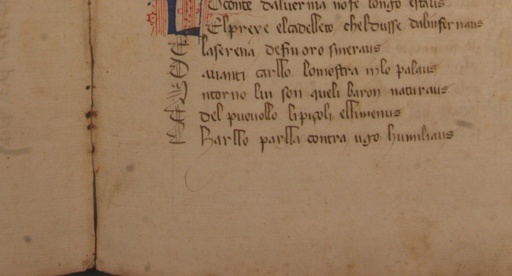 conte daluernia nofe longo estaus
El preve el cadelleto cheldusse dalinfernaus
laserena defin oro sineraus
auanti carllo lomostra inlo palaus
ntorno lui son queli baron naturaus
del puouollo li picoli ellimenus
Karllo parlla contra ugo humiliaus